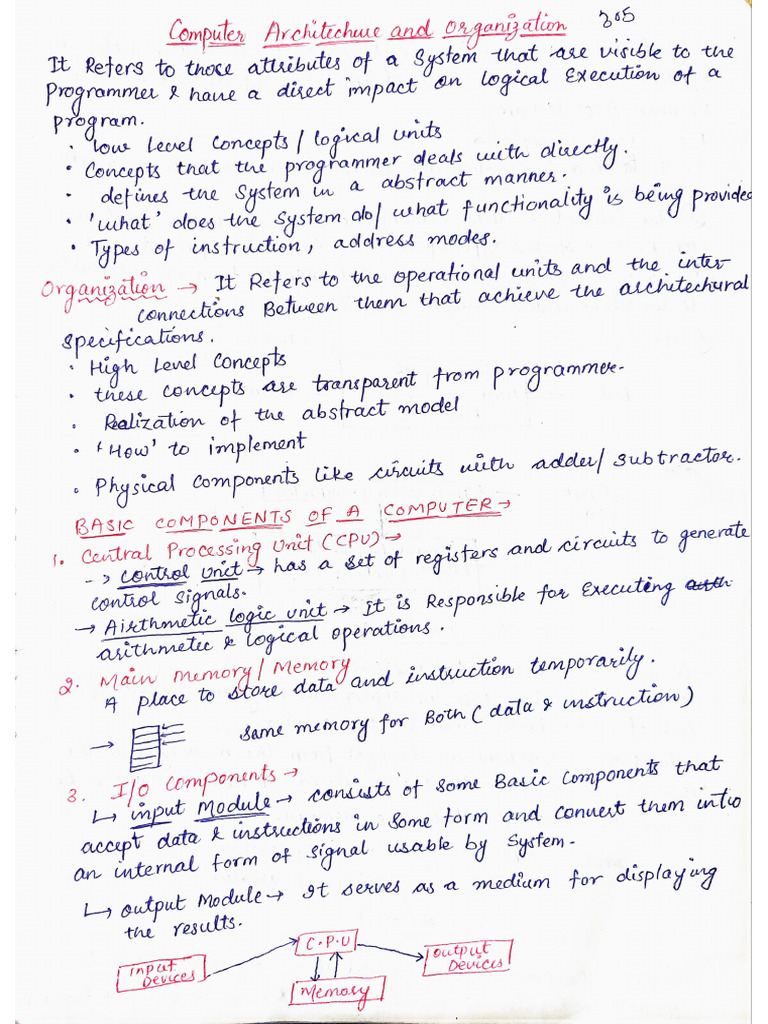 Computer Architechure and Organization 305
It Refers to those attributes of a System that are visible to the
Programmer & have a direct impact on logical Execution of a
program.
• low level Concepts / logical units
• Concepts that the programmer deals with directly.
• defines the System in a abstract manner.
• 'what' does the System do/ what functionality is being provided
• Types of instruction, address modes.
Organization → It Refers to the operational units and the inter-
connections Between them that achieve the architechural
specifications.
• High Level Concepts
• these concepts are transparent from programmer.
• Realization of the abstract model
• 'How' to implement
• Physical components like circuits with adder/ subtractor.
BASIC COMPONENTS OF A COMPUTER →
1. Central Processing Unit (CPU) →
-> control unit → has a set of registers and circuits to generate
control signals.
→ Airthmetic logic unit → It is Responsible for Executing
arithmetic & logical operations.
2. Main memory / Memory
A place to store data and instruction temporarily.
→ same memory for Both ( data & instruction)
3. I/o components →
↳ input Module → consists of some Basic components that
accept data & instructions in some form and convert them into
an internal form of signal usable by System.
↳ output Module → It serves as a medium for displaying
the results.
C.P.U
Input Devices
Output Devices
Memory